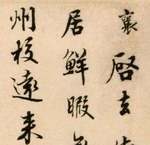 襄啓去
居鮮暇
州校遠来